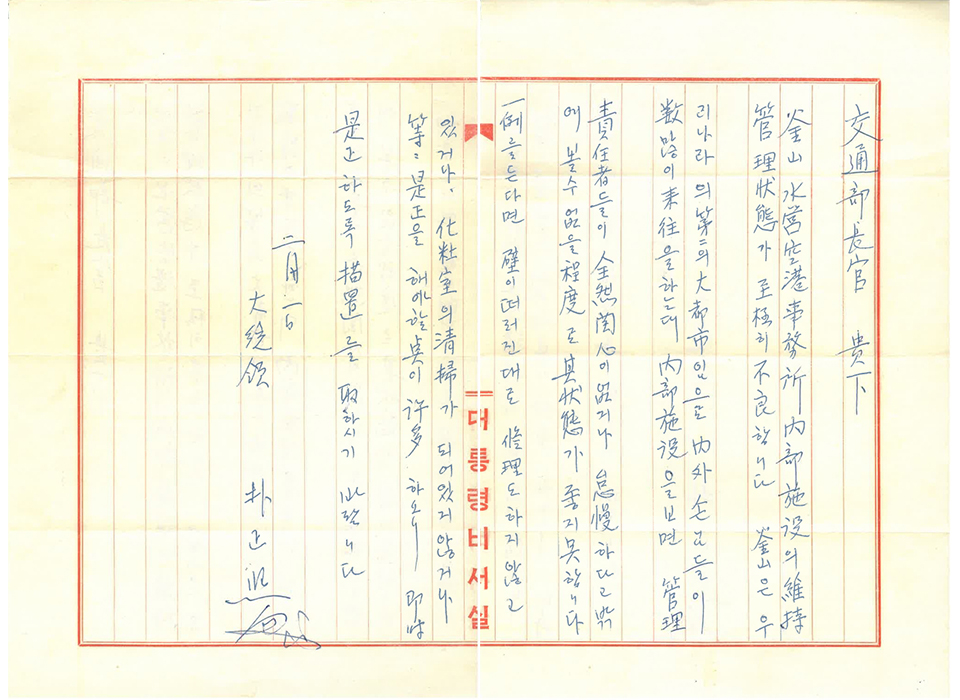 交通部長官 貴下
釜山 水営空港事務所 內部施設의 維持
管理狀態가 至極히 不良합니다 釜山은 우
리나라의 第二의 大都市임으로 內外 손님들이
數많이 来往을 하는데 內部施設을 보면 管理
責任者들이 全然 関心이 없거나 怠慢하다고 밖
에 볼수 없을 程度로 其状態가 좋지 못합니다
一例를 든다면 壁이 떠러진대로 修理도 하지 않고
있거나, 化粧室의 清掃가 되어있지 않거나
等等 是正을 해야할 点이 許多하오니 即時
是正하도록 措置를 取하시기 바랍니다
二月 一六日
大統領 朴正熙
대통령비서실